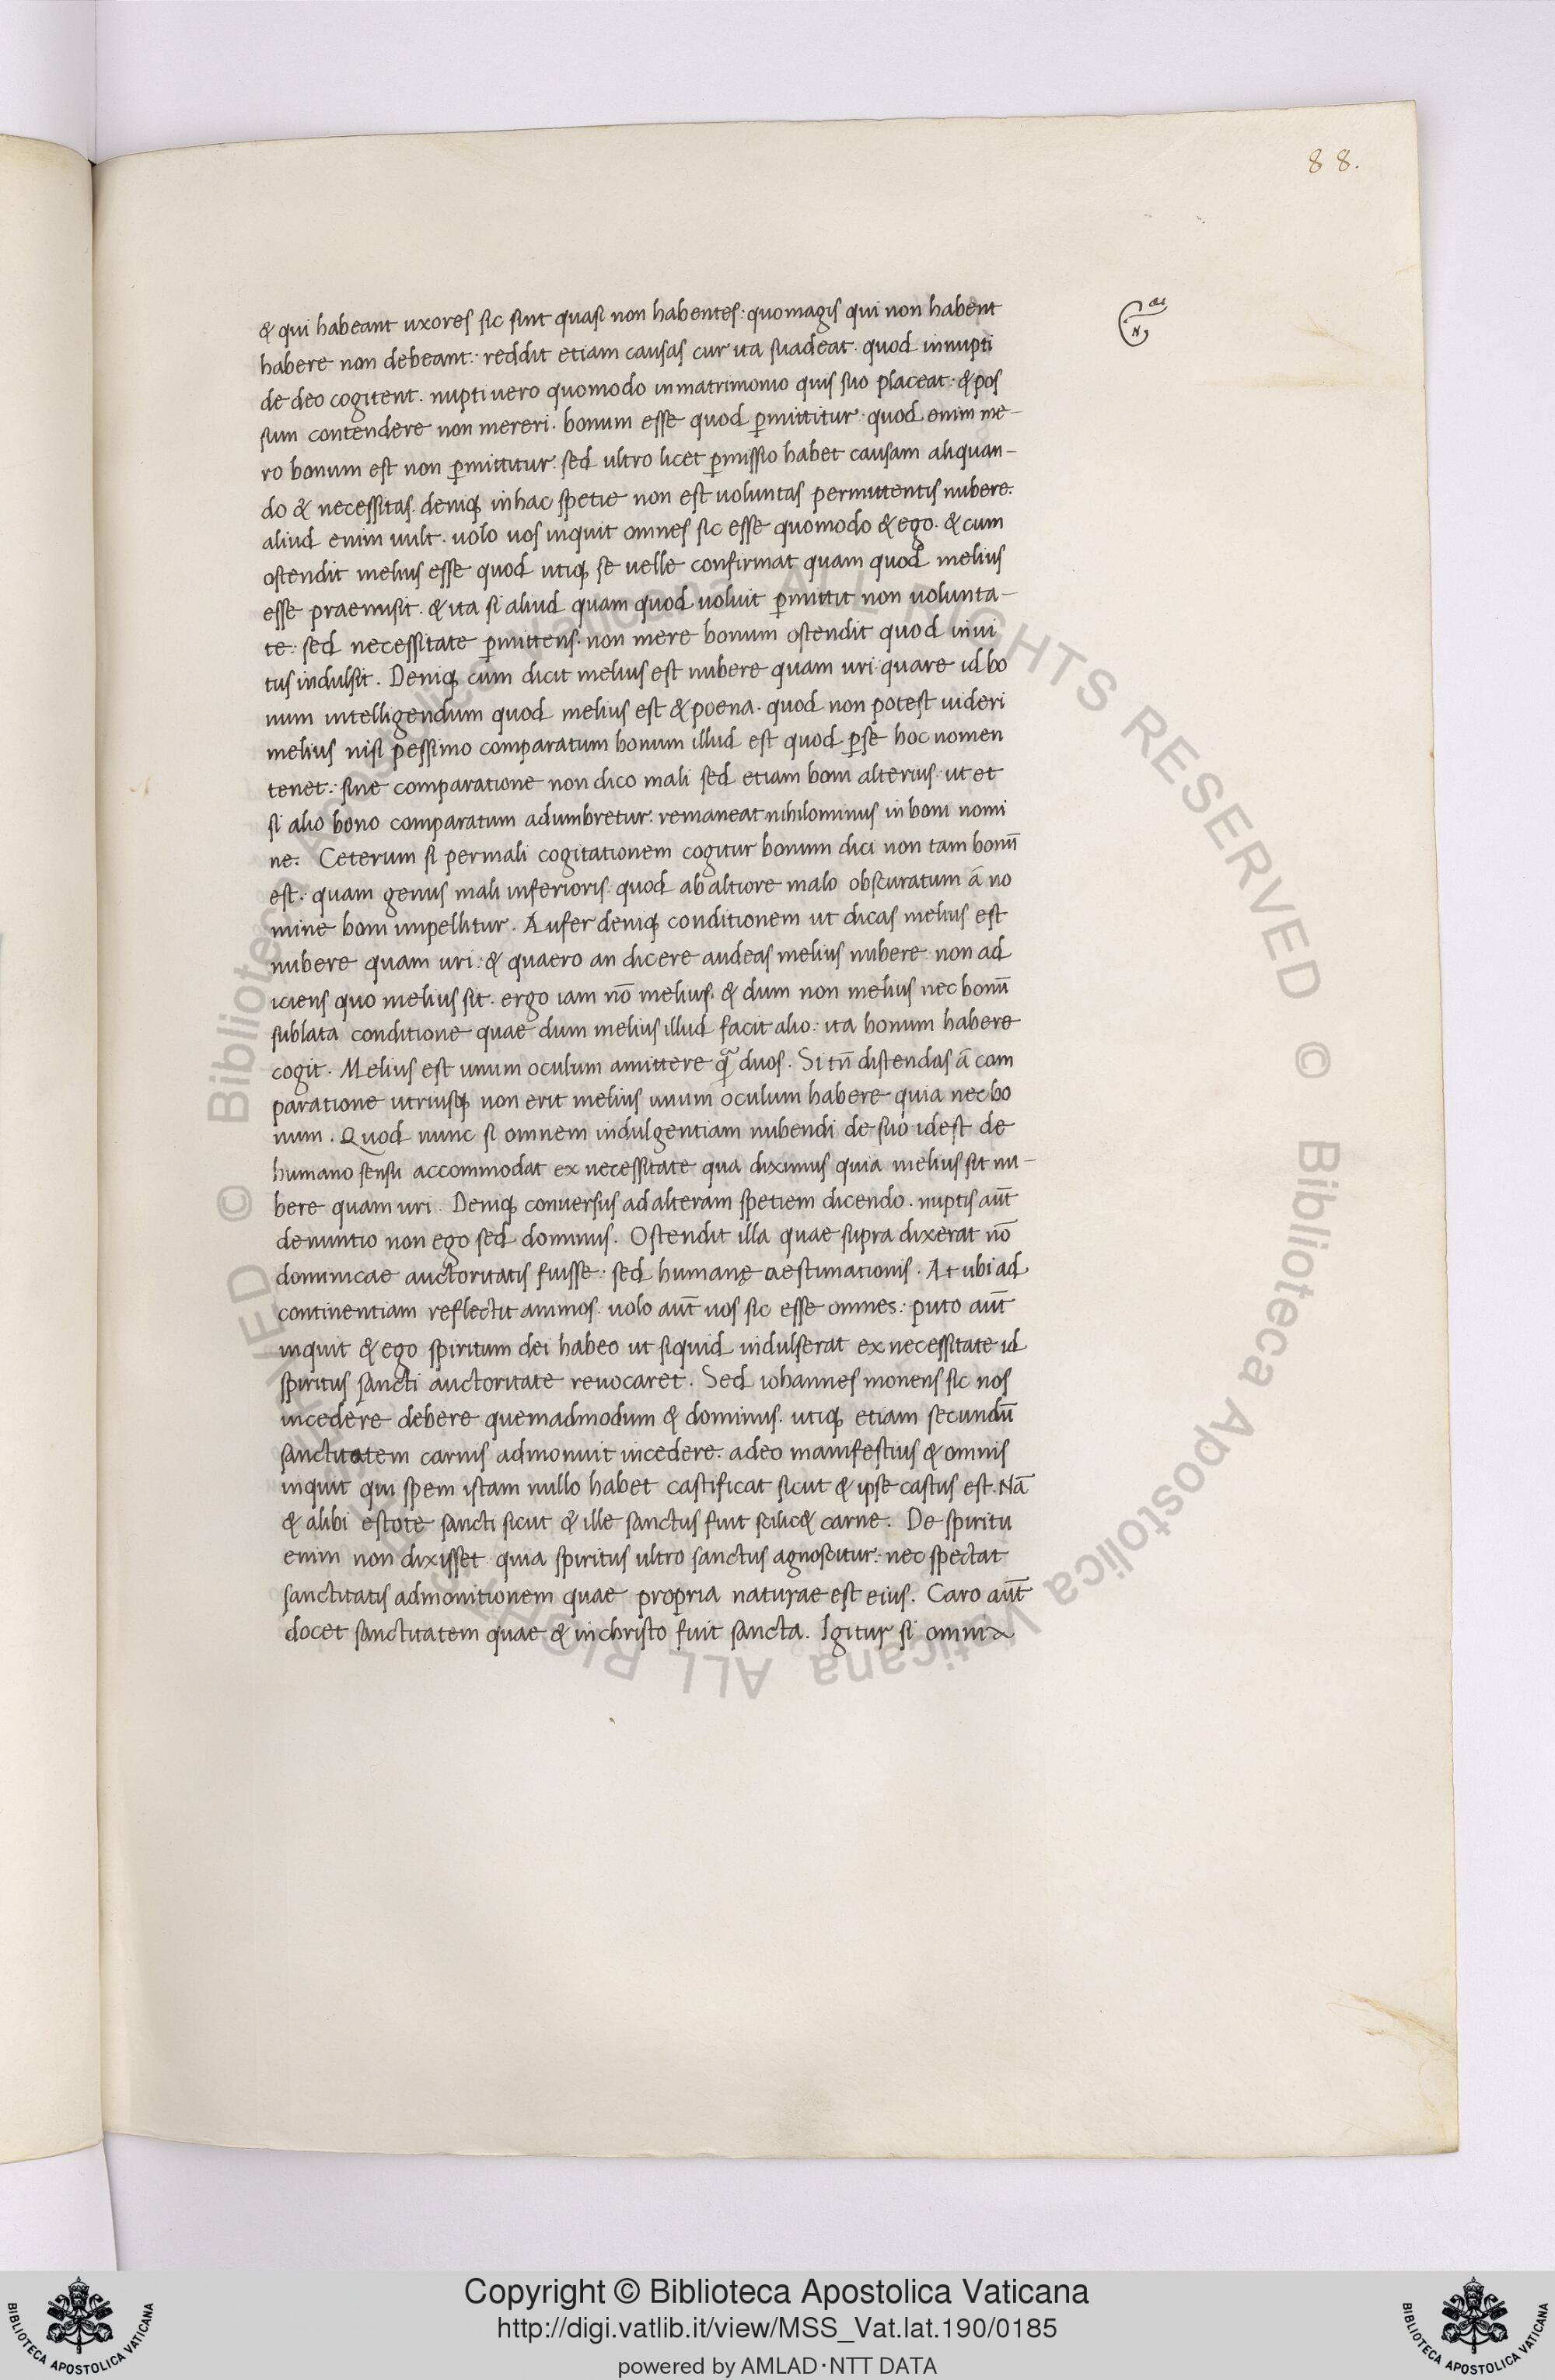 88.
& qui habeant uxores sic sint quasi non habentes: quomagis qui non habent
habere non debeant: reddit etiam causas cur ita suadeat. quod innupti
de deo cogitent. nupti vero quomodo in matrimonio quis suo placeat: & pos
sum contendere non mereri. bonum esse quod p̄mittitur. quod enim me-
ro bonum est non p̄mittitur. sed ultro licet p̄missio habet causam aliquan-
do & necessitas. deniq; in hac spetie non est uoluntas permittentis nubere.
aliud enim uult. uolo uos inquit omnes sic esse quomodo & ego. & cum
ostendit melius esse quod utiq; se uelle confirmat quam quod melius
esse praemisit. & ita si aliud quam quod uoluit p̄mittit non uolunta-
te: sed necessitate p̄mittens. non mere bonum ostendit quod inui
tus indulsit. Deniq; cum dicit melius est nubere quam uri quare id bo
num intelligendum quod melius est & poena. quod non potest uideri
melius nisi pessimo comparatum bonum illud est quod p̄se hoc nomen
tenet: sine comparatione non dico mali sed etiam boni alterius. ut et
si alio bono comparatum adumbretur. remaneat nihilominus in boni nomi
ne. Ceterum si per mali cogitationem cogitur bonum dici non tam bonū
est: quam genus mali inferioris. quod ab altiore malo obscuratum á no
mine boni impellitur. Aufer deniq; conditionem ut dicas melius est
nubere quam uri: & quaero an dicere audeas melius nubere non ad
iciens quo melius sit. ergo iam nō melius. & dum non melius nec bonū
sublata conditione quae dum melius illud facit alio: ita bonum habere
cogit. Melius est unum oculum amittere q̄ duos. Si tn̄ distendas á com
paratione utriusq; non erit melius unum oculum habere quia nec bo
num. Quod nunc si omnem indulgentiam nubendi de suo idest de
humano sensu accommodat ex necessitate qua diximus quia melius sit nu-
bere quam uri. Deniq; conuersus ad alteram spetiem dicendo. nuptis aūt
denuntio non ego sed dominus. Ostendit illa quae supra dixerat nō
dominicae auctoritatis fuisse: sed humanę aestimationis. At ubi ad
continentiam reflectit animos. uolo aūt uos sic esse omnes: puto aūt
inquit & ego spiritum dei habeo ut siquid indulserat ex necessitate id
spiritus sancti auctoritate reuocaret. Sed iohannes monens sic nos
incedere debere quemadmodum & dominus. utiq; etiam secundū
sanctitatem carnis admonuit incedere. adeo manifestius & omnis
inquit qui spem istam nullo habet castificat sicut & ipse castus est. Nā
& alibi estote sancti sicut & ille sanctus fuit scilic& carne. De spiritu
enim non dixisset quia spiritus ultro sanctus agnoscitur: nec spectat
sanctitatis admonitionem quae propria naturae est eius. Caro aūt
docet sanctitatem quae & in christo fuit sancta. Igitur si omnia
© Biblioteca Apostolica Vaticana ALL RIGHTS RESERVED © Biblioteca Apostolica Vaticana ALL RIGHTS RESERVED
Copyright © Biblioteca Apostolica Vaticana
http://digi.vatlib.it/view/MSS_Vat.lat.190/0185
powered by AMLAD·NTT DATA
BIBLIOTECA APOSTOLICA VATICANA
BIBLIOTECA APOSTOLICA VATICANA